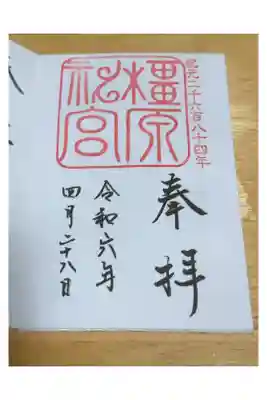 紀元二千六百八十四年
奉拝
橿原神宮
令和六年
四月二十八日